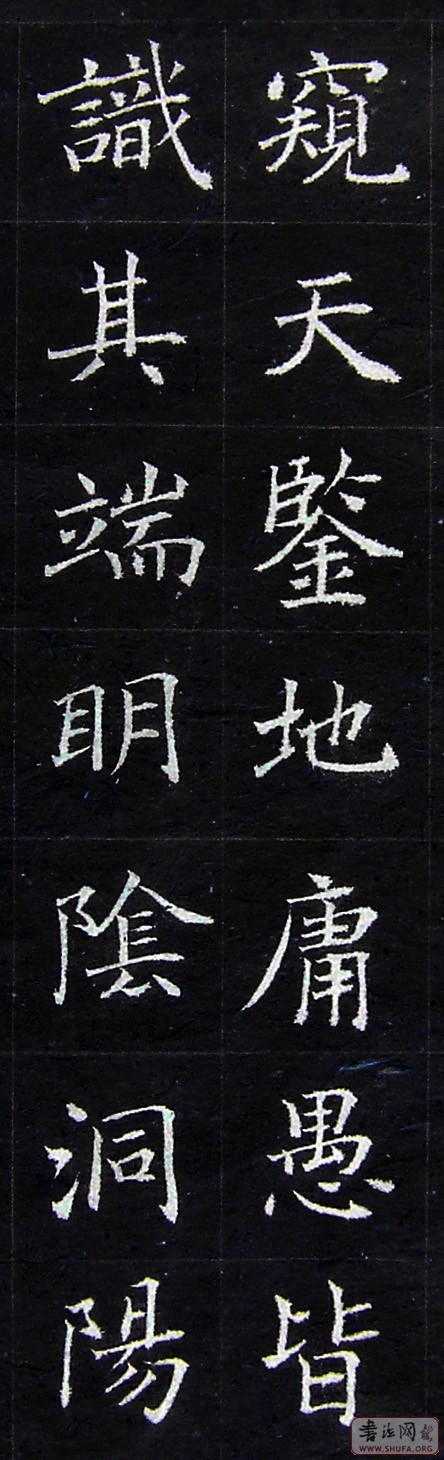 窺天鑒地庸愚皆
識其端明陰洞陽
書法网
WWW.SHUFA.ORG